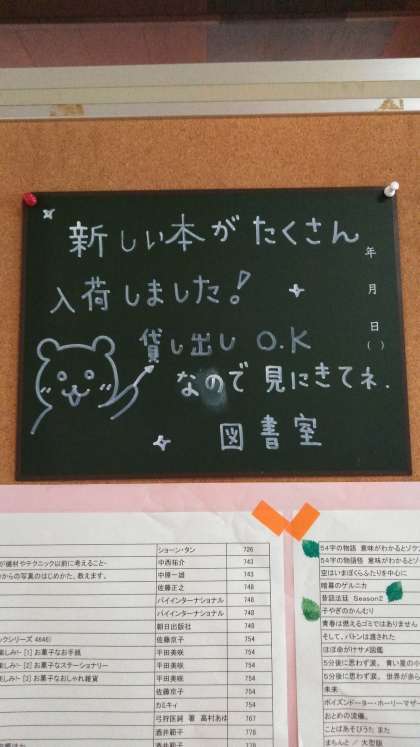 新しい本が たくさん
入荷しました!
貸し出し O.K
なので 見にきてネ.
図書室
年
月
日
( )
ショーン・タン 726
が機材やテクニック以前に考えること- 中西祐介 743
からの写真のはじめかた、教えます。 中藤一雄 743
佐藤正之 748
パイインターナショナル 748
パイインターナショナル 748
朝日出版社 748
ックシリーズ 4646] 佐藤京子 754
楽しみ! [1] お菓子なお手紙 平田美咲 754
楽しみ! [2] お菓子なステーショナリー 平田美咲 754
楽しみ! [3] お菓子なおしゃれ雑貨 平田美咲 754
佐藤京子 754
カミキィ 754
弓狩匡純 著 高村あゆ 767
酒井範子 778
酒井範子 778
54字の物語 意味がわかるとゾク
54字の物語怪 意味がわかるとゾ
空はいまぼくらふたりを中心に
暗幕のゲルニカ
昔話法廷 Season2
子やぎのかんむり
青春は燃えるゴミではありません
そして、バトンは渡された
ほぼ命がけサメ図鑑
5分後に思わず涙。 青い星の小
5分後に思わず涙。 世界があら
未来
ポイズンドーター・ホーリーマザー
おとめの流儀。
ことばあそびうた また
まちんと / 大型版